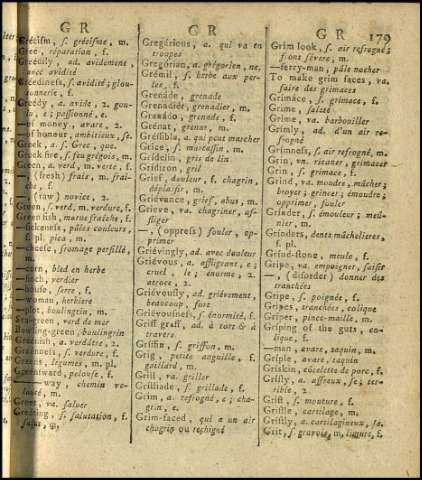 GR
GR
GR
179
Grécism, ſ. gréciſme, m.
Gree, réparation, f.
Greedily, ad. avidement,
avec avidité
Greedineſs, ſ. avidité; glou-
tonnerie, f.
Greedy, a. avide, 2. gou-
; e; paſſionné, e.
— of money, avare, 2.
— of honeur, ambitieux, ſe.
Greek, a. ſ. Grec, que.
Greek fire, ſ. feu grégois, m.
Green, a. verd, m. verte, f.
—, (freſh) frais, m. fraî-
che, f.
— (raw) novice, 2.
Green, ſ. verd, m. verdure, f.
Greeniſh, fraîche, f.
—ſickneſs, pâles couleurs,
f. pl. pica, m.
—cheeſe, fromage perſillé,
m.
—corn, bled en herbe
—finch, verdier
—houſe, ſerre, f.
—woman, herbiere
—plot, boulingrin, m.
green, verd de mer
Bowling-green, boulingrin
Greeniſh, a. verdâtre, 2.
Greenneſs, ſ. verdure, f.
Greens, légumes, m. pl.
Greenſward, pelouſe, f.
way, chemin ve-
louté, m.
Greet, va. ſaluer
Greeting, ſ. ſalutation, f.
ſalut, m.
Gregárious, a. qui va en
troupes
Gregórian, a. grégorien, ne.
Grémil, ſ. herbe aux per-
les, f.
Grenáde, grenade, f.
Grenadiér, grenadier, m.
Grenádo, grenade, f.
Grénat, grenat, m.
Gréſſible, a. qui peut marcher
Grice, ſ. marcaſſin, m.
Grídelin, gris de lin
Grídiron, gril
Grief, douleur, f. chagrin,
déplaiſir, m.
Griévance, grief, abus, m.
Grieve, va. chagriner, af-
fliger
—, (oppreſs) fouler, op-
primer
Griévingly, ad. avec douleur
Griévous, a. affligeant, e;
cruel, le; énorme, 2.
atroce, 2.
Griévouſly, ad. griévement,
beaucoup, fort
Griévouſneſs, ſ. énormité, f.
Griff graff, ad. à tort & à
travers
Griffin, ſ. griffon, m.
Grig, petite anguille, f.
gaillard, m.
Grill, va. griller
Grilliade, ſ. grillade, f.
Grim, a. refrogné, e; cha-
grin, e.
Grim-faced, qui a un air
chagrin ou rechigné
Grim look, ſ. air refrogné;
ſévere, m.
—ferry-man, pâle nocher
To make grim faces, va.
faire des grimaces
Grimáce, ſ. grimace, f.
Grime, ſaleté
Grime, va. barbouiller
Grimly, ad. d'un air re-
frogné
Grimneſs, ſ. air refrogné, m.
Grin, vn. ricaner, grimacer
Grin, ſ. grimace, f.
Grind, va. moudre, mâcher;
broyer; grincer; émoudre;
opprimer, fouler
Grinder, ſ. émouleur; meû-
nier, m.
Grinders, dents mâchelieres,
f. pl.
Grind-ſtone, meule, f.
Gripe, va. empoigner, ſaiſir
—, (diſorder) donner des
tranchées
Gripe, ſ. poignée, f.
Gripes, tranchées, colique
Griper, pince-maille, m.
Griping of the guts, co-
lique, f.
—man, avare, taquin, m.
Griple, avare, taquin
Griskin, côtelette de porc, f.
Griſly, a. affreux, ſe; ter-
rible, 2
Griſt, ſ. mouture, f.
Griſtle, cartilage, m.
Griſtly, a. cartilagineux, ſe.
Grit, ſ. gravois, m. limure, f.